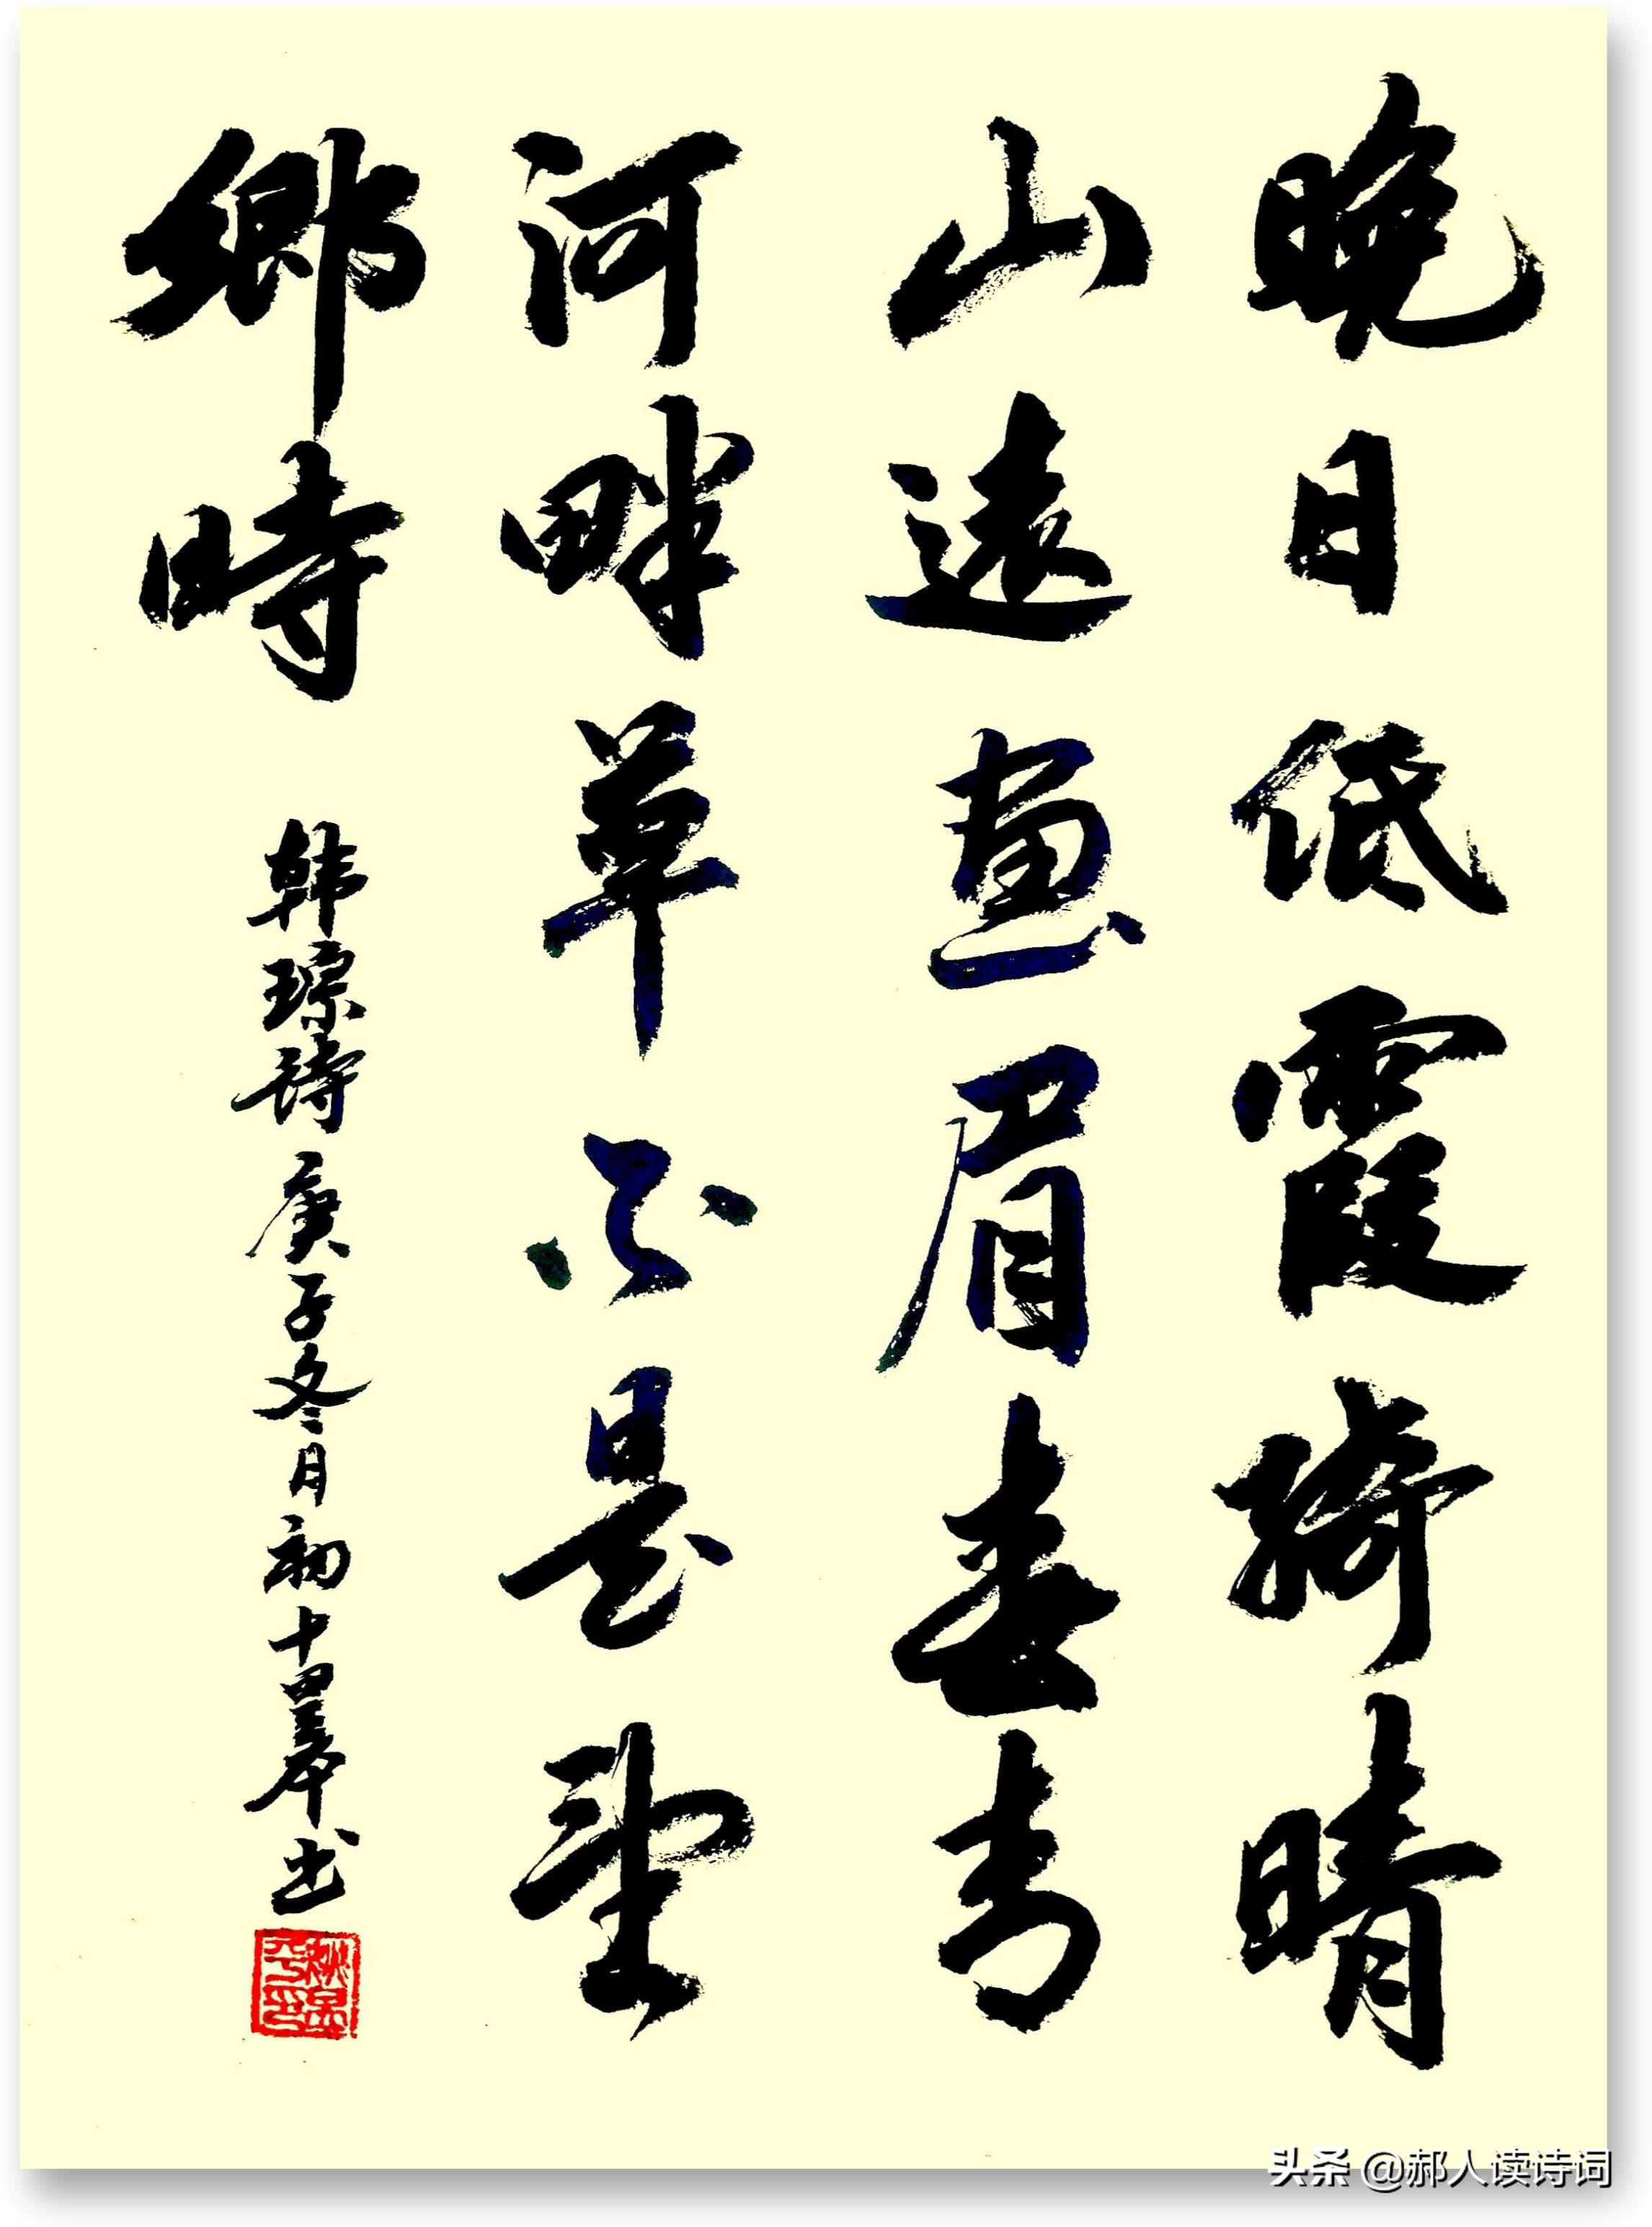 晚日低霞綺晴
山遠畫眉春青
河畔草不是望
鄉時
韩琮詩庚子冬月初十書
头条 @郝人读诗词